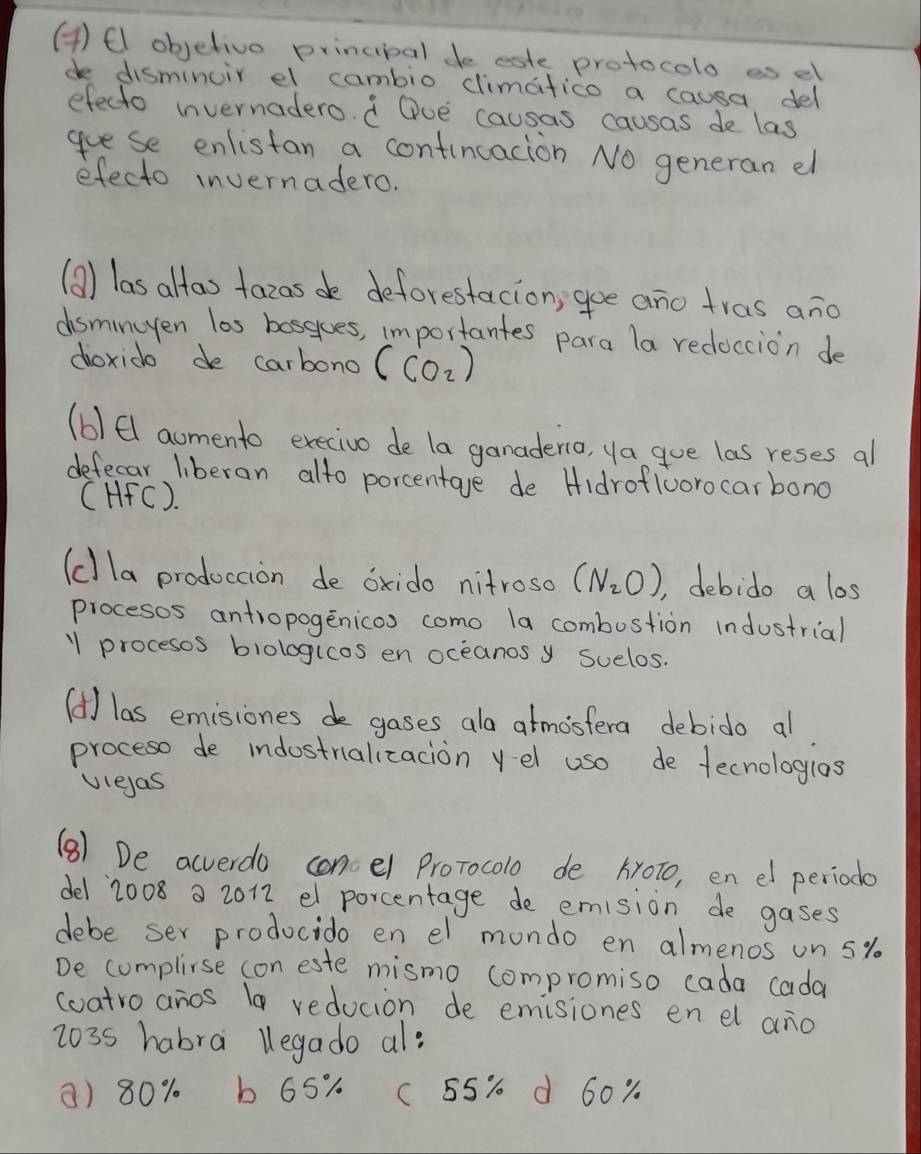 (7) El objetivo principal de este protocolo es el
de disminuir el cambio climático a causa del
efecto invernadero. ¿ Qué causas causas de las
que se enlistan a continuación NO generan el
efecto invernadero.
(a) las altas tazas de deforestacion, que año tras año
disminuyen los bosques, importantes para la reducción de
dioxido de carbono (CO₂)
(b) El aumento execivo de la ganaderia, ya que las reses al
defecar liberan alto porcentaje de Hidrofluorocarbono
(HFC).
(c) la producción de óxido nitroso (N₂O), debido a los
procesos antropogénicos como la combustión industrial
y procesos biologicos en océanos y suelos.
(d) las emisiones de gases ala atmósfera debido al
proceso de industrialización y el uso de tecnologias
viejas
(8) De acuerdo con el Protocolo de kyoto, en el periodo
del 2008 a 2012 el porcentage de emisión de gases
debe ser producido en el mundo en almenos un 5%
De complirse con este mismo compromiso cada cada
cuatro años la reducion de emisiones en el año
2035 habrá llegado al:
a) 80% b 65% c 55% d 60%